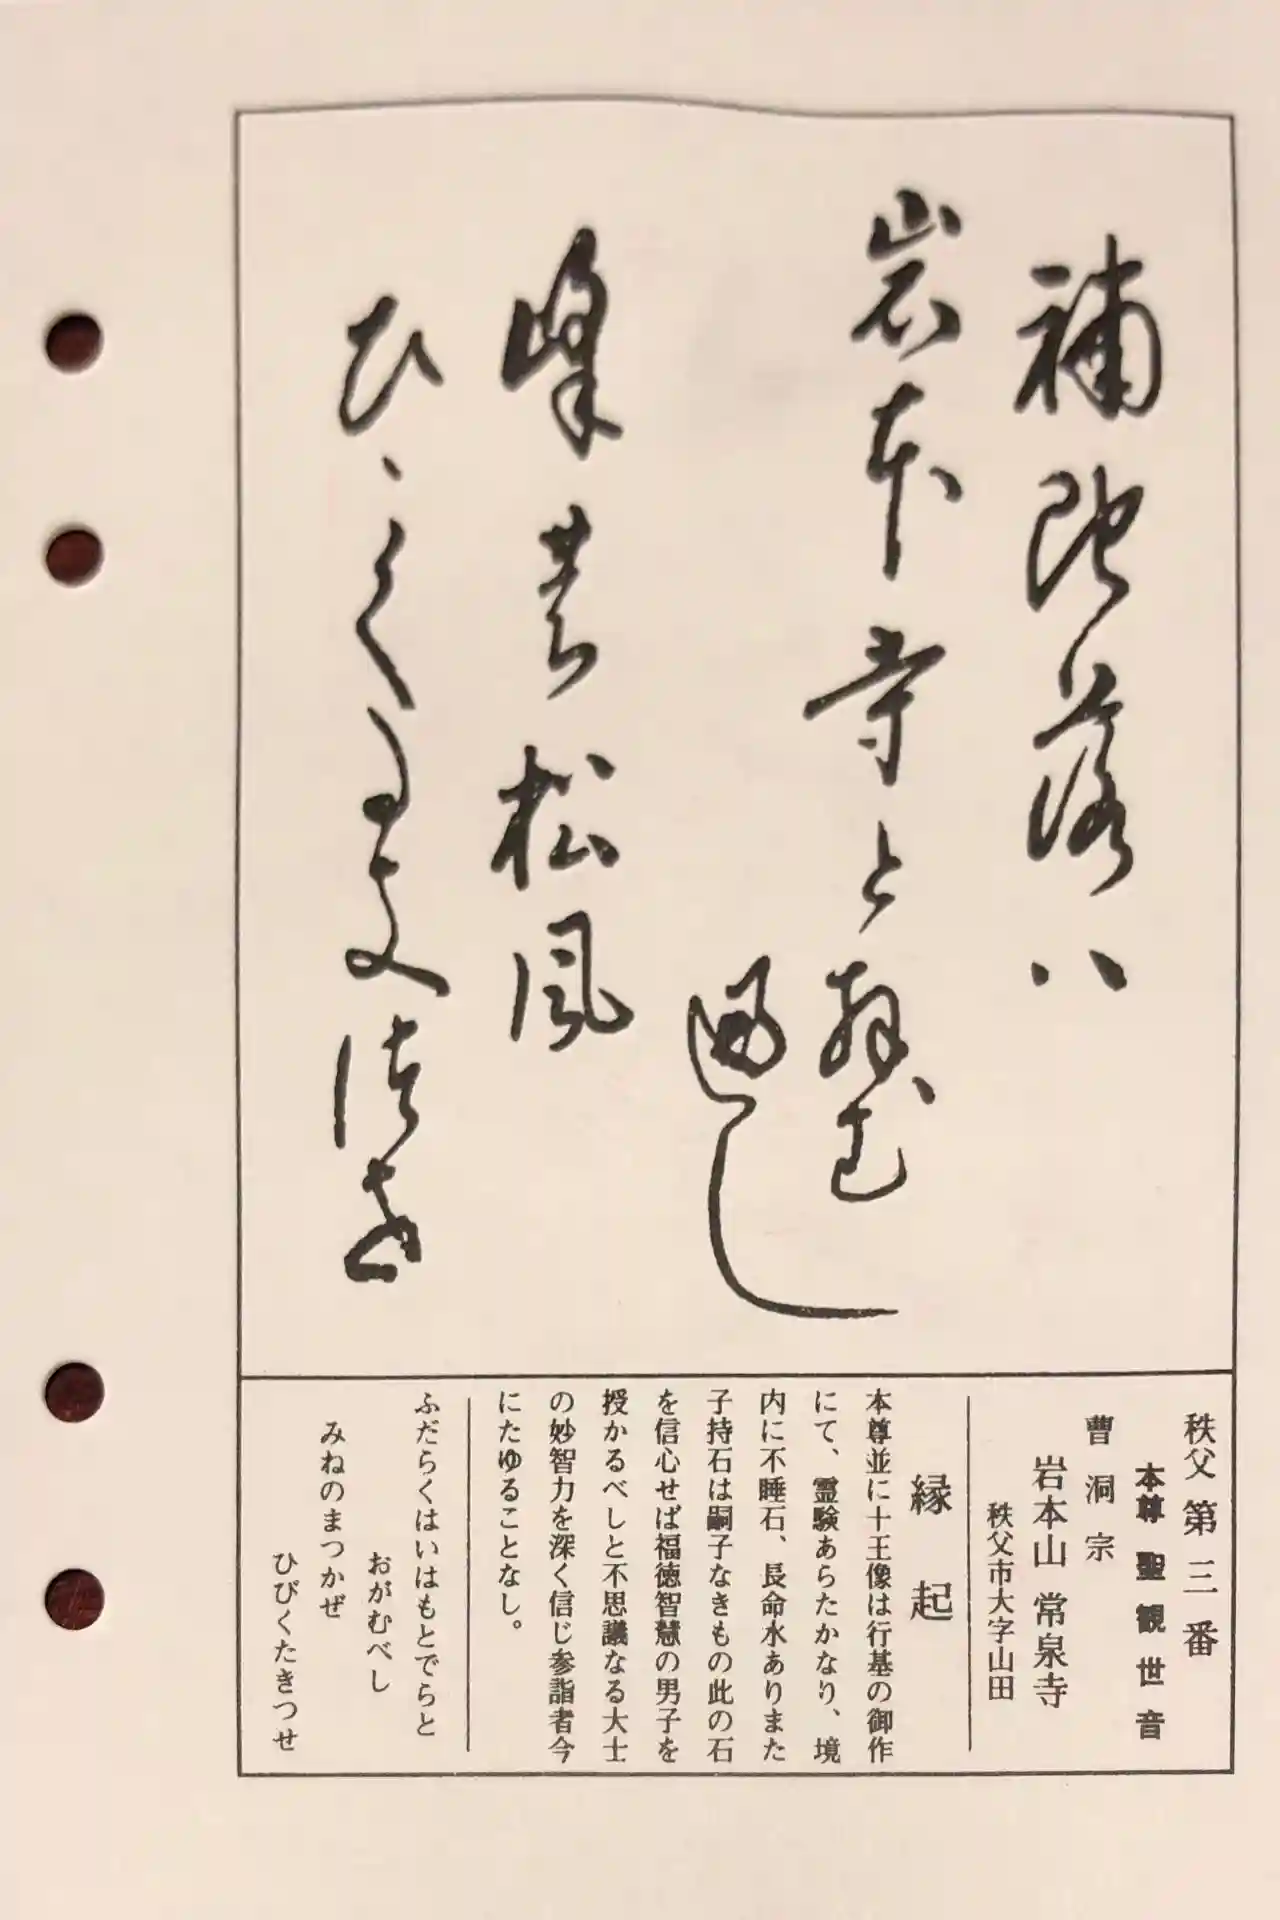 補陀落ハ
岩本寺と拝む
遍し
峰の松風
ひゝく多支津せ
秩父第三番
本尊 聖観世音
曹洞宗
岩本山 常泉寺
秩父市大字山田
縁起
本尊並に十王像は行基の御作
にて、霊験あらたかなり、境
内に不睡石、長命水ありまた
子持石は嗣子なきもの此の石
を信心せば福徳智慧の男子を
授かるべしと不思議なる大士
の妙智力を深く信じ参詣者今
にたゆることなし。
ふだらくはいはもとでらと
おがむべし
みねのまつかぜ
ひびくたきつせ